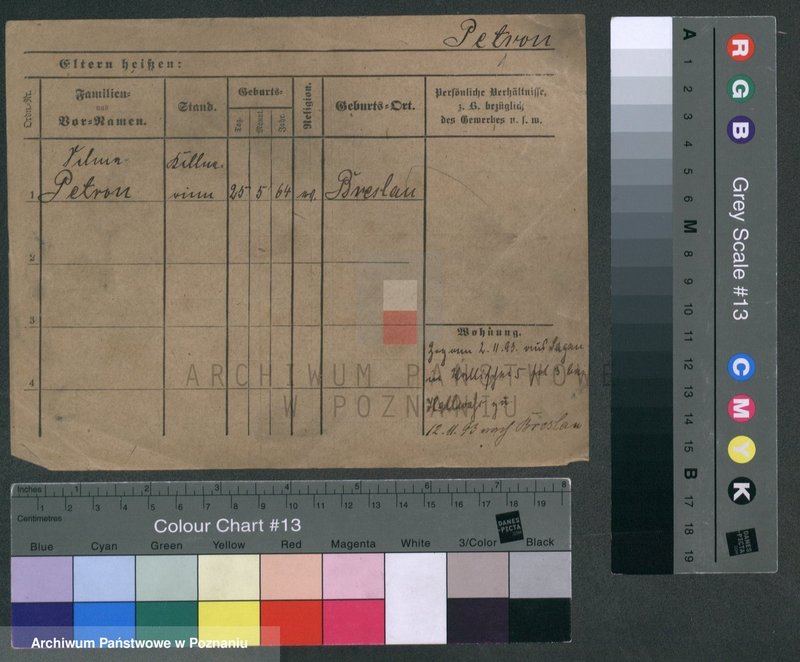 Petron
Eltern heißen:
Ordn.-Nr.
Familien-
und
Vor-Namen.
Stand.
Geburts-
Tag.
Monat.
Jahr.
Religion.
Geburts-Ort.
Persönliche Verhältnisse,
z. B. bezüglich
des Gewerbes u. s. w.
1
Petron
Kellne-
rinn
25
5
64
ev.
Breslau
2
3
4
Wohnung.
Zog vom 2.11.93. aus Sagan
zu
12.11.93 nach Breslau
ARCHIWUM PAŃSTWOWE
W POZNANIU
Inches
1 2 3 4 5 6 7 8
Centimetres
1 2 3 4 5 6 7 8 9 10 11 12 13 14 15 16 17 18 19
Colour Chart #13
DANES
-PICTA
.COM
Blue Cyan Green Yellow Red Magenta White 3/Color Black
Archiwum Państwowe w Poznaniu
A 1 2 3 4 5 6 M 8 9 10 11 12 13 14 15 B 17 18 19
R
G
B
Grey Scale #13
C
M
Y
K
DANES
-PICTA
.COM